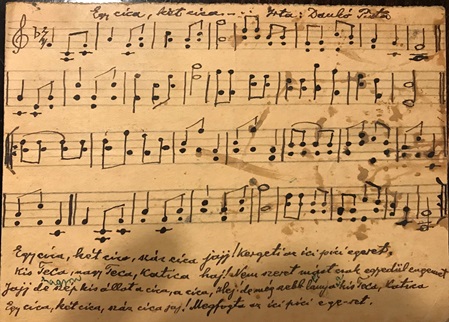 Egy cica, két cica....: Irta: Dankó Pista
Egy cica, két cica, száz cica jajj! kergeti az ici pici egeret,
Kis Teca, nagy Teca, Katica haj! Nem szeret csak egyedül engemet
Jajj de szép kis állat a cica, a cica, Hej! de még szebb lány a kis Teca, Katica
Egy cica, két cica, száz cica jaj! Megfogta az ici pici egeret.